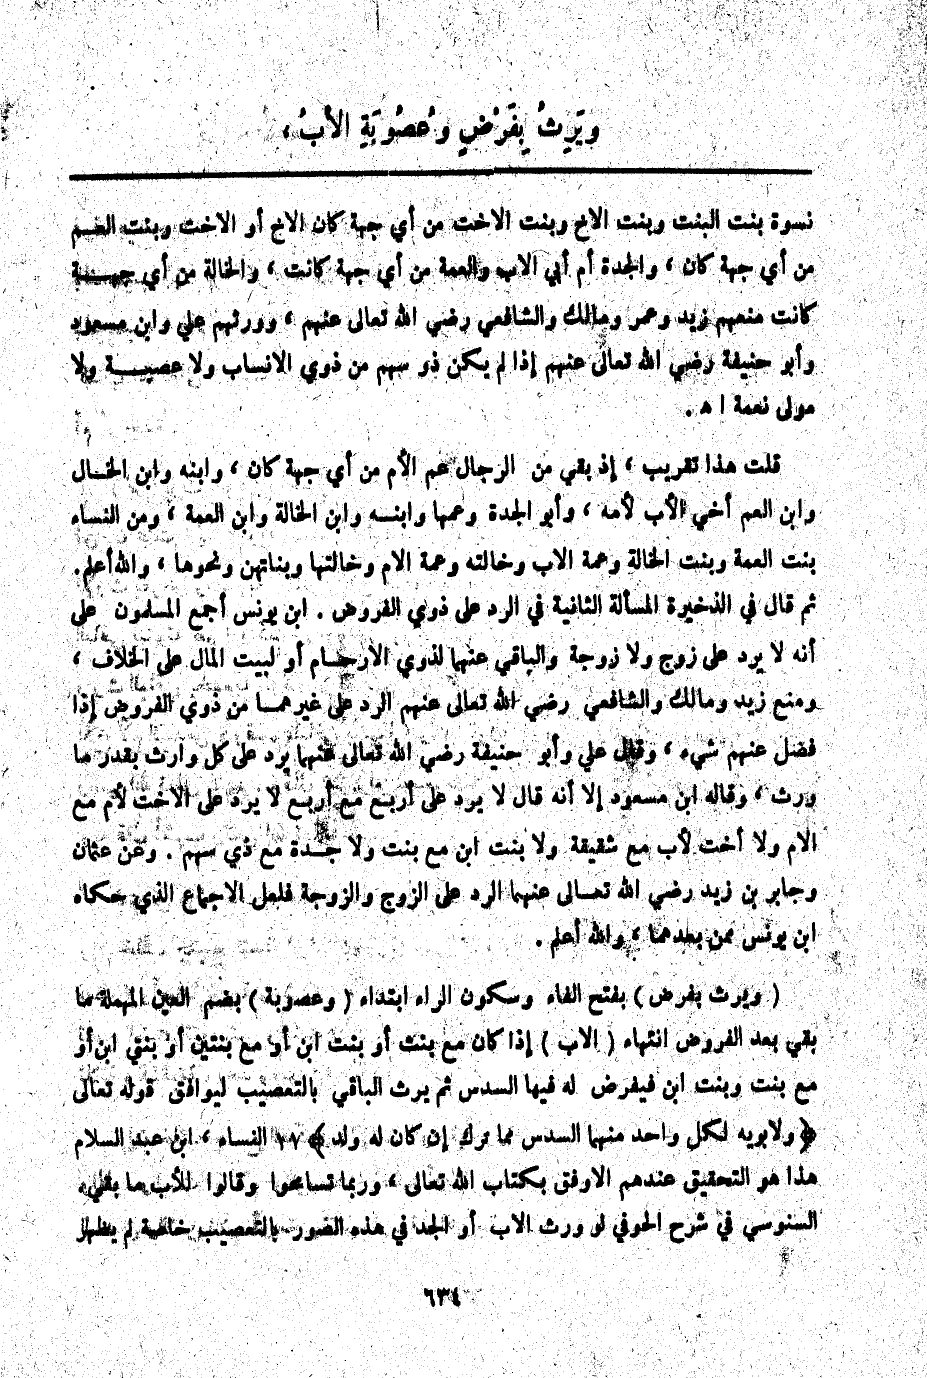 ويَرِثُ بِفَرْضٍ وعُصُوبَةٍ الأبُ ،
نسوة بنت البنت وبنت الاخ وبنت الاخت من أي جهة كان الاخ أو الاخت وبنت العم
من أي جهة كان ، والجدة أم أبي الاب والعمة من أي جهة كانت ، والخالة من أي جهـــة
كانت منعهم زيد وعمر ومالك والشافعي رضي الله تعالى عنهم ، وورثهم علي وابن مسعود
وأبو حنيفة رضي الله تعالى عنهم إذا لم يكن ذو سهم من ذوي الانساب ولا عصبـــة ولا
مولى نعمة ا ه .
قلت هذا تقريب ، إذ بقي من الرجال عم الأم من أي جهة كان ، وابنه وابن الخـال
وابن العم أخي الأب لأمه ، وأبو الجدة وعمها وابنـــه وابن الخالة وابن العمة ، ومن النساء
بنت العمة وبنت الخالة وعمة الاب وخالته وعمة الام وخالتها وبناتهن ونحوها ، والله أعلم.
ثم قال في الذخيرة المسألة الثانية في الرد على ذوي الفروض . ابن يونس أجمع المسلمون على
أنه لا يرد على زوج ولا زوجة والباقي عنهما لذوي الارحـام أو لبيت المال على الخلاف ،
ومنع زيد ومالك والشافعي رضي الله تعالى عنهم الرد على غيرهمـا من ذوي الفروض إذا
فضل عنهم شيء ، وقال علي وأبو حنيفة رضي الله تعالى عنهما يرد على كل وارث بقدر ما
ورث ، وقاله ابن مسعود إلا أنه قال لا يرد على أربع مع أربع لا يرد على الاخت لأم مع
الام ولا أخت لأب مع شقيقة ولا بنت ابن مع بنت ولا جـدة مع ذي سهم . وعن عثمان
وجابر بن زيد رضي الله تعـالى عنهما الرد على الزوج والزوجة فلعل الاجماع الذي حكاه
ابن يونس ممن بعدهما ، والله أعلم .
( ويرث بفرض ) بفتح الفاء وسكون الراء ابتداء ( وعصوبة ) بضم العين المهملة مما
بقي بعد الفروض انتهاء ( الاب ) إذا كان مع بنت أو بنت ابن أو مع بنتين أو بنتي ابن أو
مع بنت وبنت ابن فيفرض له فيها السدس ثم يرث الباقي بالتعصيب ليوافق قوله تعالى
﴿ ولابويه لكل واحد منهما السدس مما ترك إن كان له ولد ﴾ ١٧ النساء ، ابن عبد السلام
هذا هو التحقيق عندهم الاوفق بكتاب الله تعالى ، وربما تسامحوا وقالوا للأب ما بقي،
السنوسي في شرح الحوفي لو ورث الاب أو الجد في هذه الصور بالتعصيب خاصة لم يظهر
٦٣٤